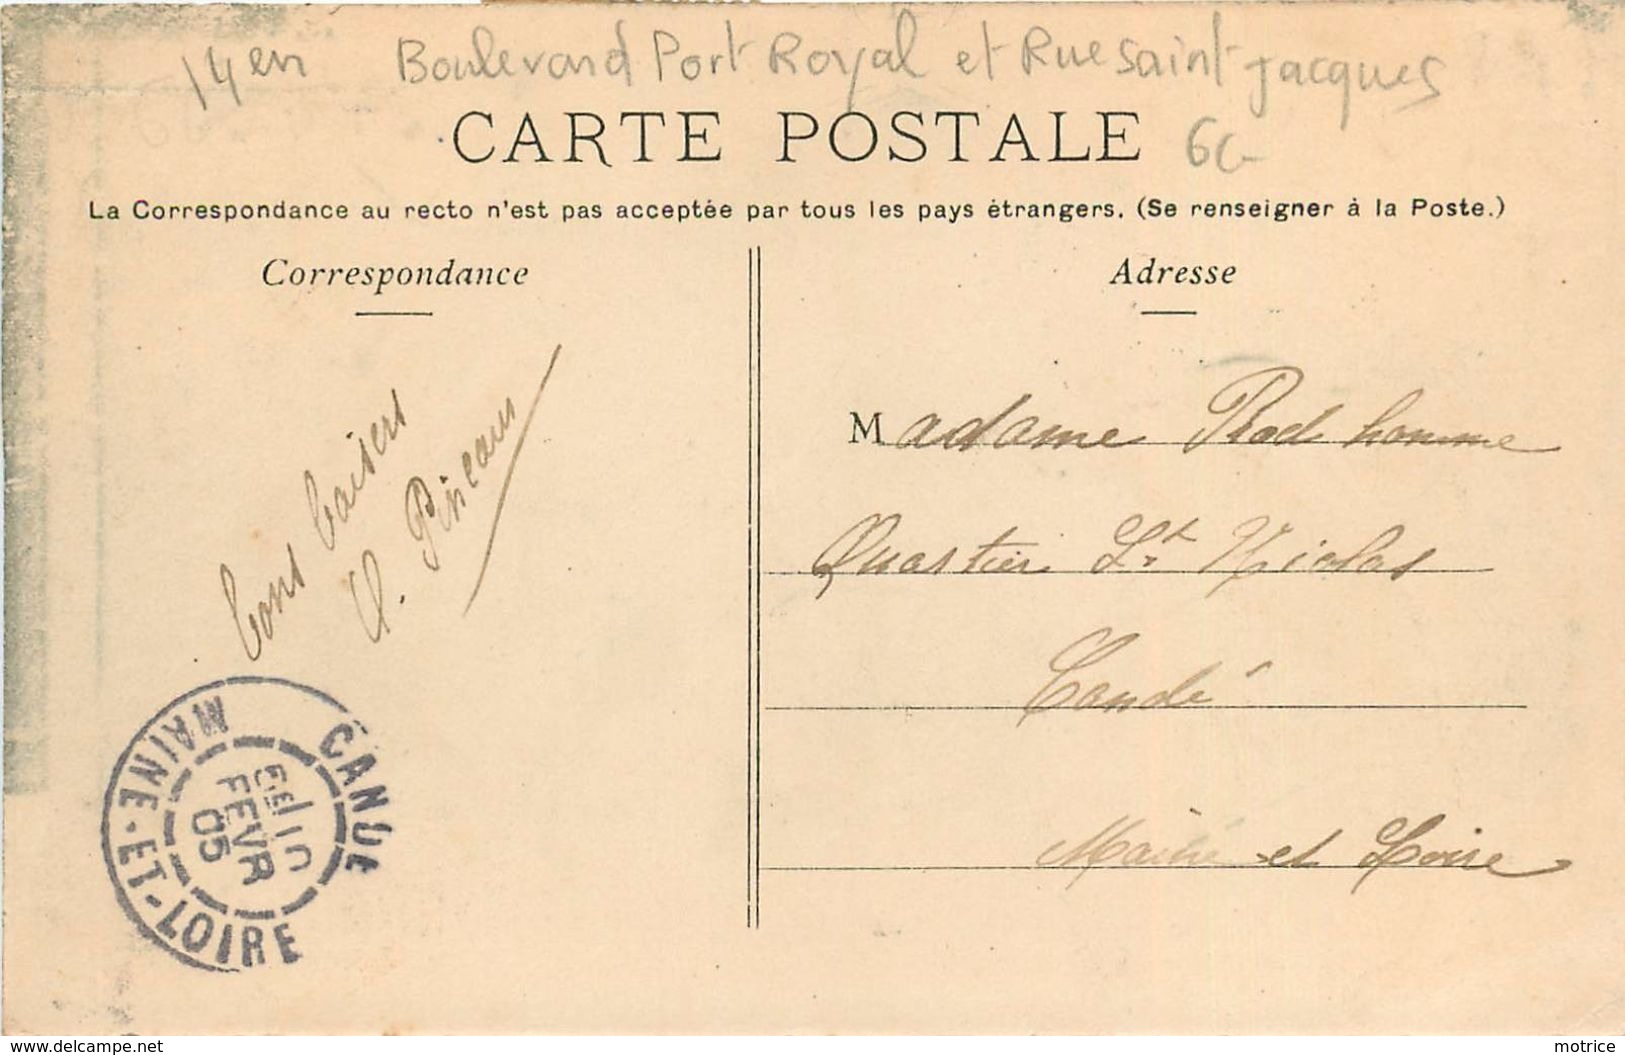 14en Boulevard Port Royal et Rue Saint Jacques
CARTE POSTALE
La Correspondance au recto n'est pas acceptée par tous les pays étrangers. (Se renseigner à la Poste.)
Correspondance
Adresse
bons baisers
Pineau
Madame Prod homme
Quartier St Nicolas
Candé
Maine et Loire
CANDÉ
MAINE-ET-LOIRE
10
FEVR
05
www.delcampe.net
motrice